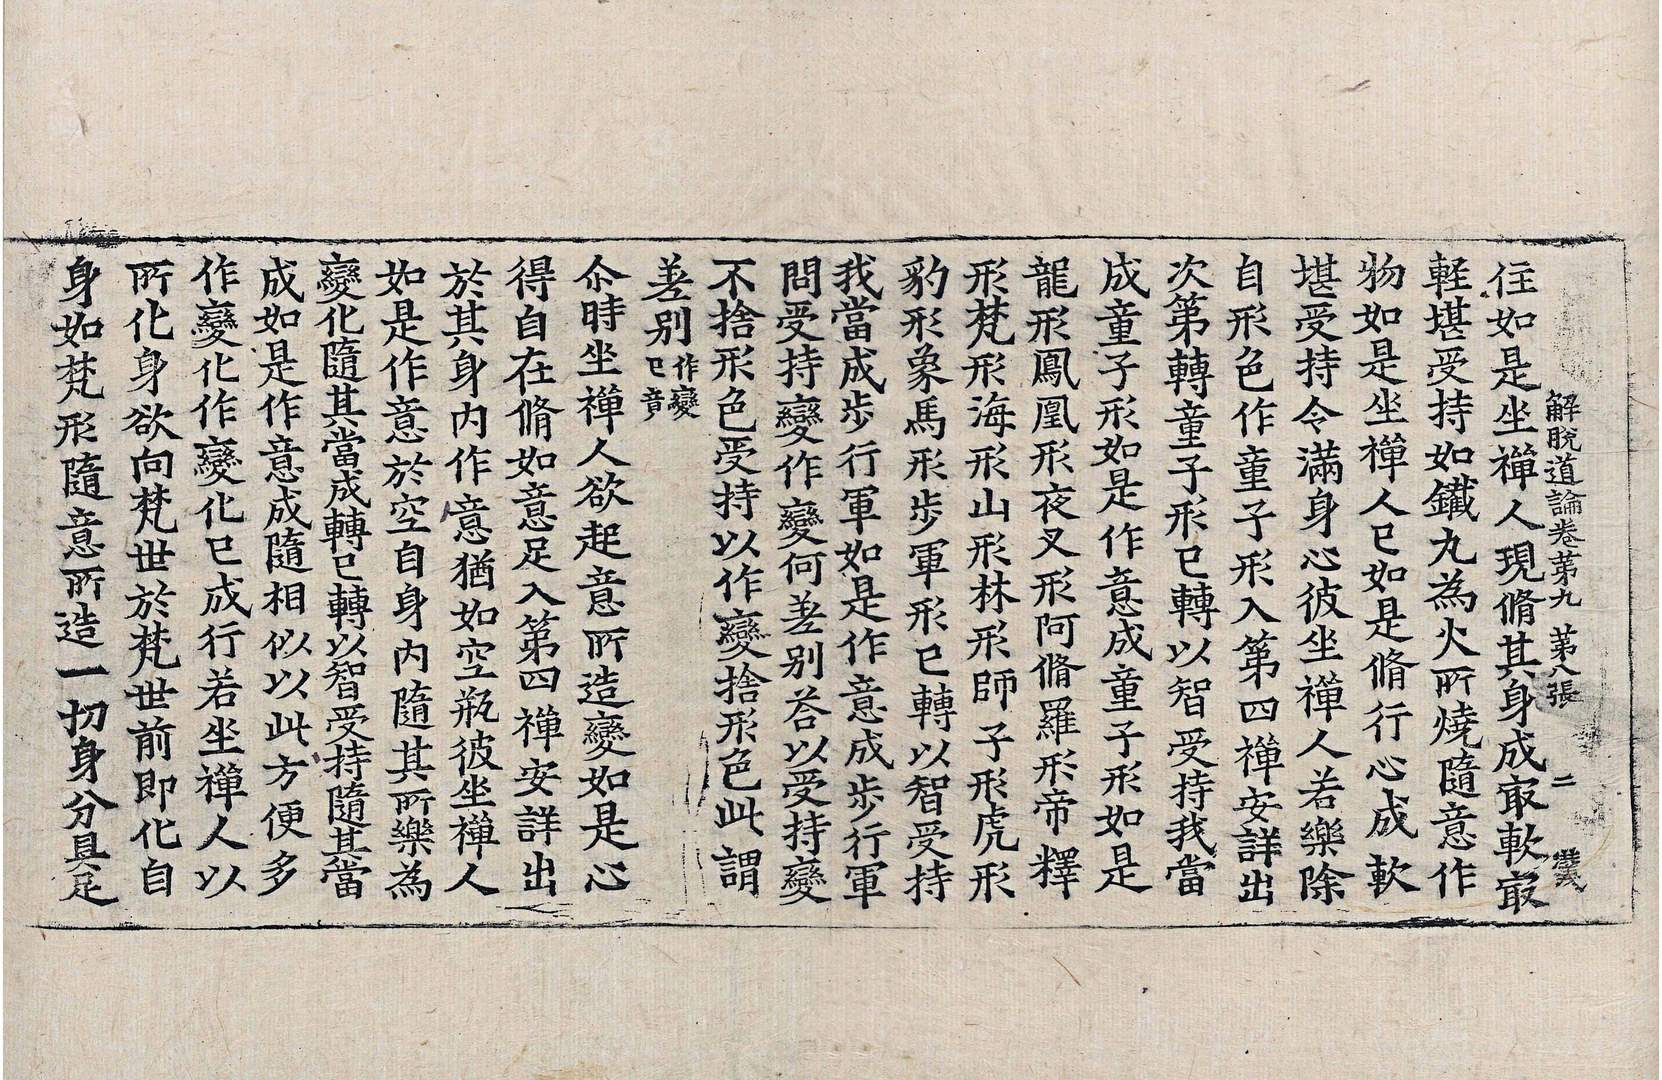 解脫道論卷第九 第八張 二
住如是坐禪人現脩其身成㝡軟㝡
輕堪受持如鐵丸為火所燒隨意作
物如是坐禪人已如是脩行心成軟
堪受持令滿身心彼坐禪人若樂除
自形色作童子形入第四禪安詳出
次第轉童子形已轉以智受持我當
成童子形如是作意成童子形如是
龍形鳳凰形夜叉形阿脩羅形帝釋
形梵形海形山形林形師子形虎形
豹形象馬形步軍形已轉以智受持
我當成步行軍如是作意成步行軍
問受持變作變何差別荅以受持變
不捨形色受持以作變捨形色此謂
差別作變已竟
尒時坐禪人欲起意所造變如是心
得自在脩如意足入第四禪安詳出
於其身內作意猶如空瓶彼坐禪人
如是作意於空自身內隨其所樂為
變化隨其當成轉已轉以智受持隨其當
成如是作意成隨相似以此方便多
作變化作變化已成行若坐禪人以
所化身欲向梵世於梵世前即化自
身如梵形隨意所造一切身分具足